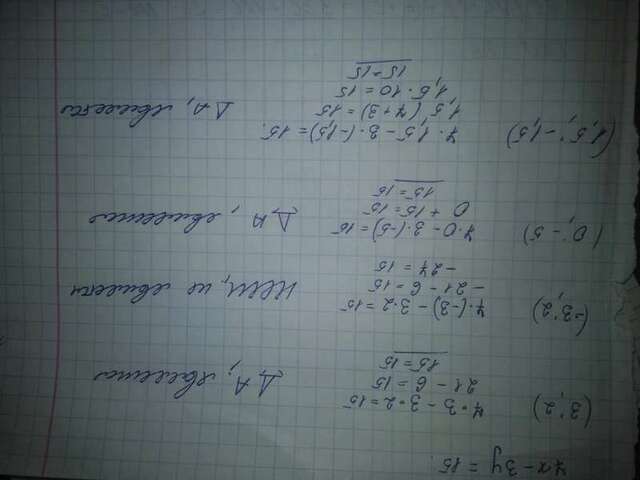 7x - 3y = 15.
(3; 2) 7·3 - 3·2 = 15 ДА, является
21 - 6 = 15
15 = 15
(-3; 2) 7·(-3) - 3·2 = 15 Нет, не является
-21 - 6 = 15
-27 = 15
(0; -5) 7·0 - 3·(-5) = 15 ДА, является
0 + 15 = 15
15 = 15
(1,5; -1,5) 7·1,5 - 3·(-1,5) = 15.
1,5·(7+3) = 15 ДА, является
1,5·10 = 15
15 = 15